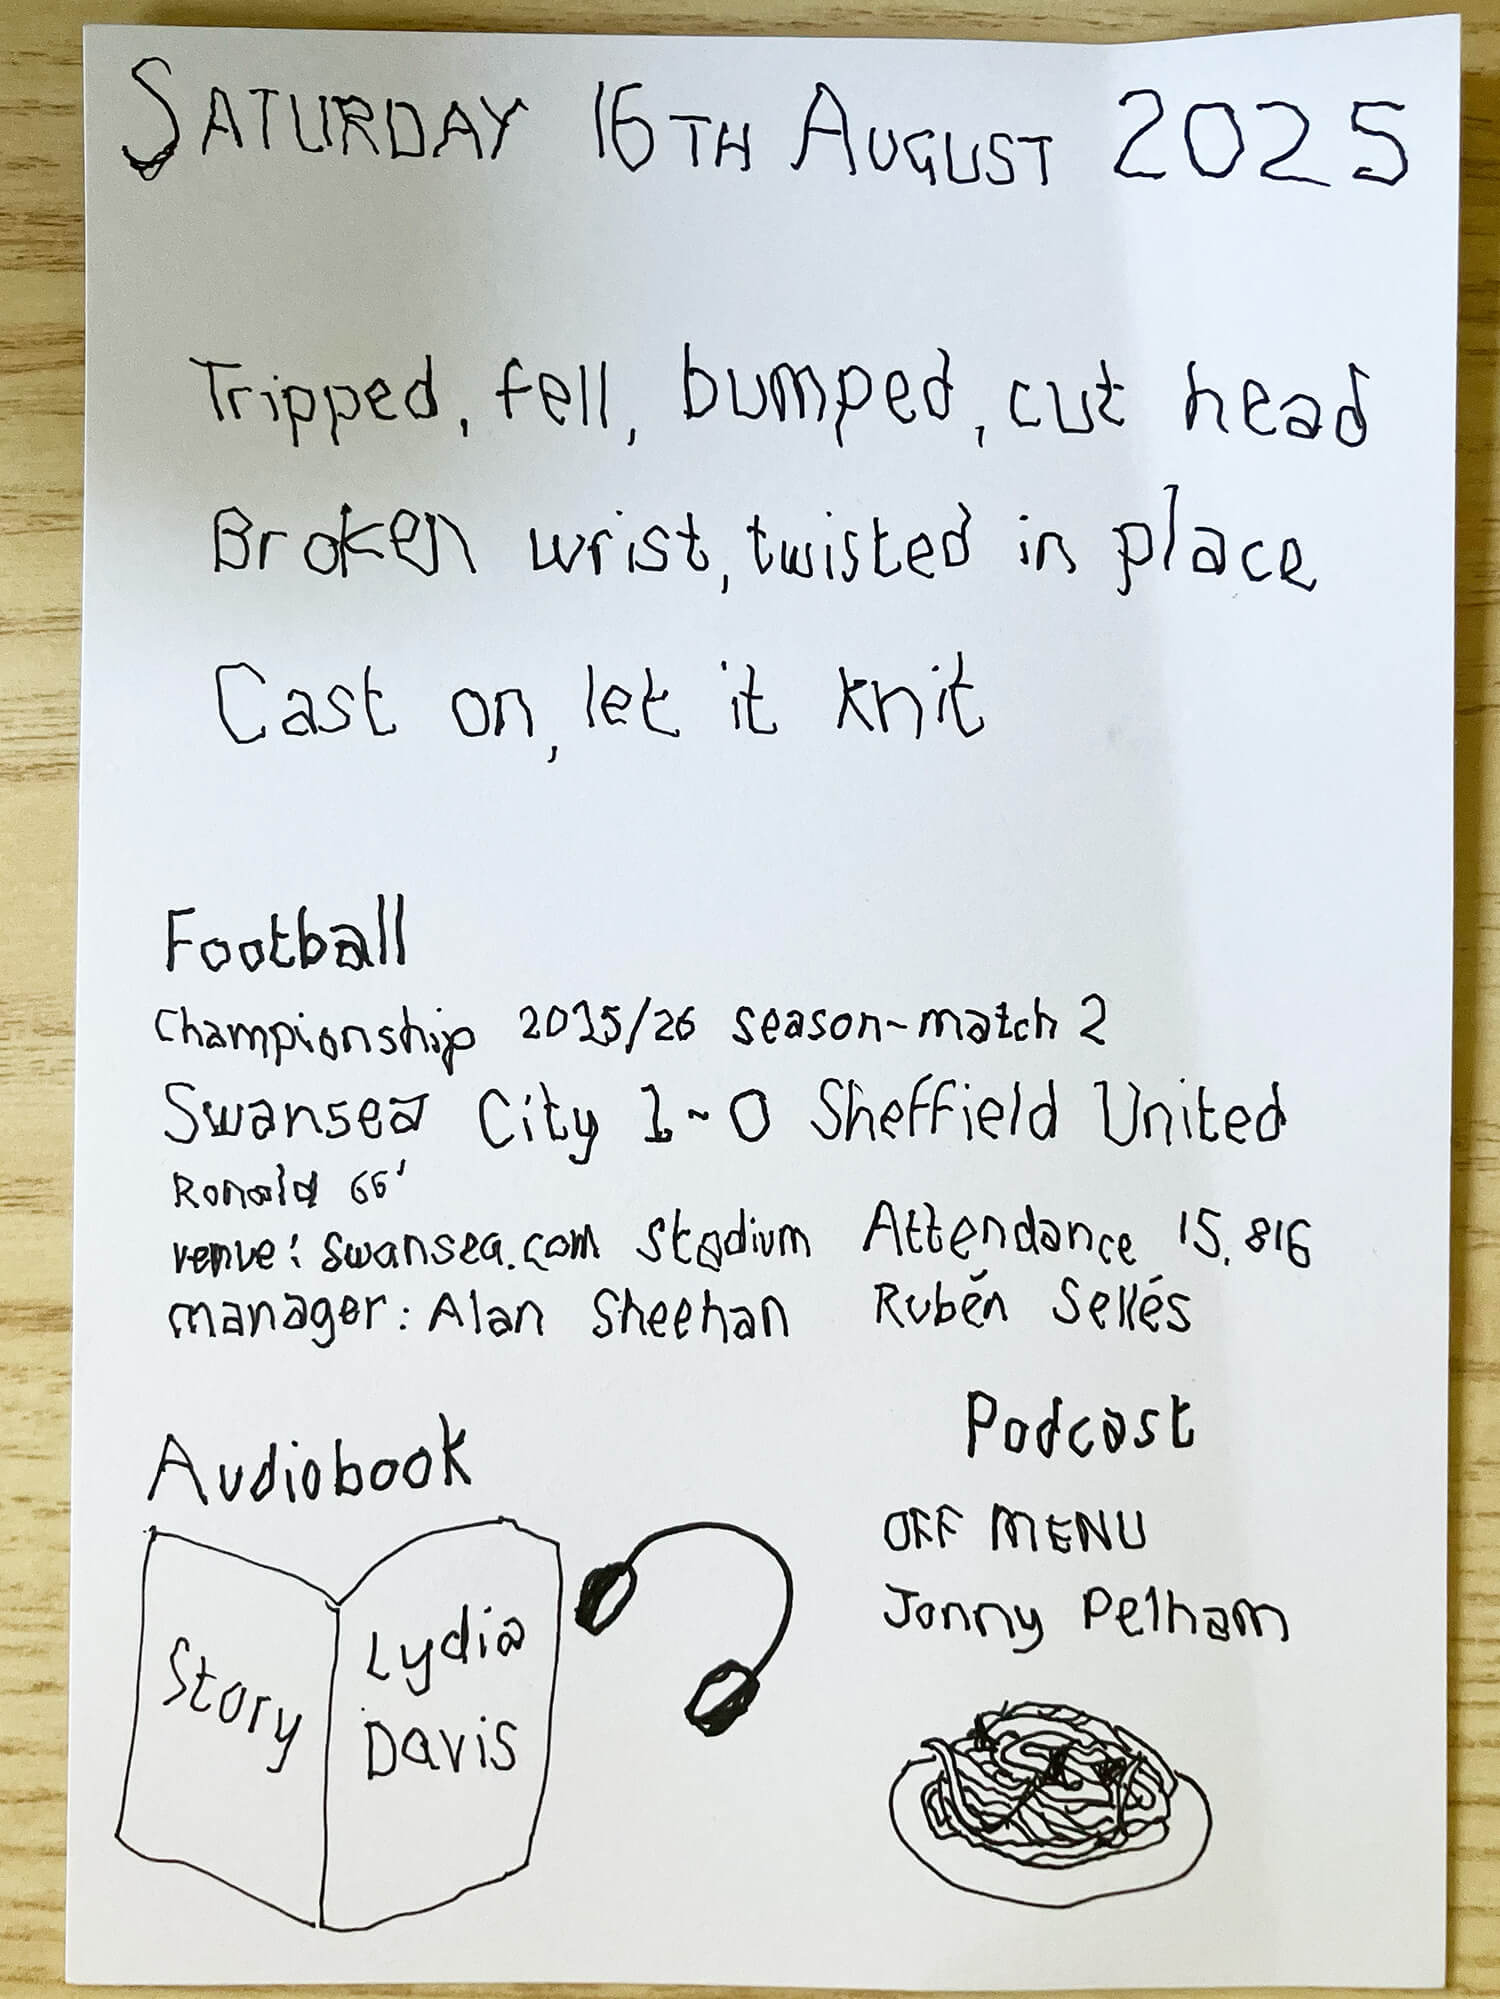 SATURDAY 16TH AUGUST 2025
Tripped, fell, bumped, cut head
Broken wrist, twisted in place
Cast on, let it knit
Football
Championship 2025/26 season-match 2
Swansea City 1-0 Sheffield United
Ronald 66'
venue: swansea.com Stadium Attendance 15,816
manager: Alan Sheehan Rubén Sellés
Audiobook
Story
Lydia
Davis
Podcast
OFF MENU
Jonny Pelham